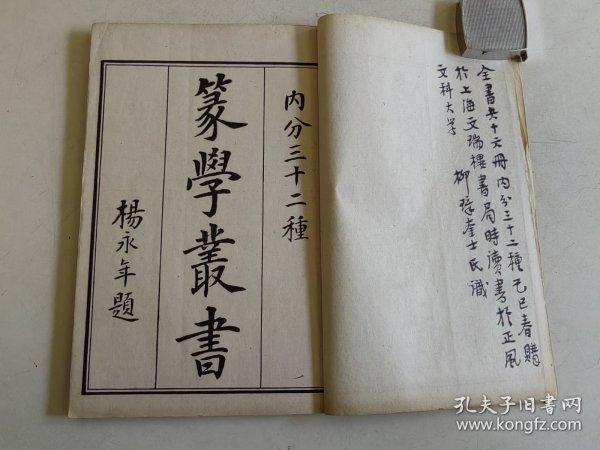 全書共十六冊內分三十二種己巳春購
於上海文瑞樓書局時讀書於正風
文科大学 柳璋奎士氏識
內分三十二種
篆學叢書
楊永年題
孔夫子旧书网
www.kongfz.com